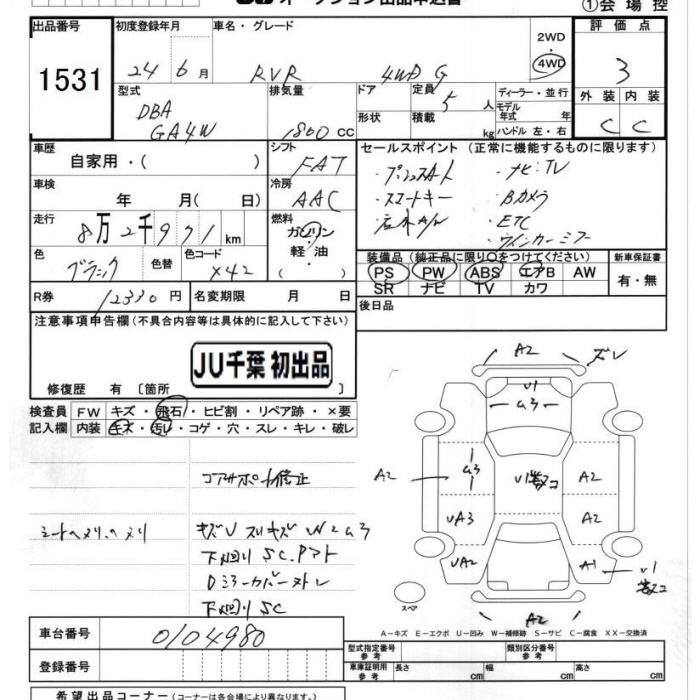 ①会場控
出品番号 初度登録年月 車名・グレード 2WD 評価点
1531 24 6月 RVR 4WD G 4WD 3
型式 排気量 ドア 定員 5人 ディーラー・並行 外装 内装
DBA モデル年式 年
GA4W 1800cc 形状 積載 kg ハンドル 左・右 C C
車歴 自家用・( ) シフト FAT セールスポイント (正常に機能するものに限ります)
・プッシュスタート ・ナビ・TV
車検 年 月( 日) 冷房 AAC ・スマートキー ・Bカメラ
走行 8万2千971km 燃料 ガソリン 軽・油 ・( ) ・ETC
・ウインカーミラー
色 ブラック 色替 色コード X42 装備品 (純正品に限り○をつけてください) 新車保証書
PS PW ABS エアB AW 有・無
SR ナビ TV カワ
R券 12330円 名変期限 月 日 後日品
注意事項申告欄 (不具合内容等は具体的に記入して下さい)
JU千葉 初出品
修復歴 有 〔箇所 〕
検査員 FW キズ・飛石・ヒビ割・リペア跡・×要
記入欄 内装 キズ・汚レ・コゲ・穴・スレ・キレ・破レ
A2 ズレ
U1
A2 A3 A2
UA3 A2
UA2 A1 U1
A2
コアサポート修正
キズU スリキズ W2 A3
下廻り SC.
下廻り SC
スペア
A−キズ E−エクボ U−凹み W−補修跡 S−サビ C−腐食 XX−交換済
車台番号 0104980
型式指定番号 参考 類別区分番号 参考
登録番号 車庫証明用 参考 長さ cm 幅 cm 高さ cm
希望出品コーナー (コーナーは各会場により異なります。)